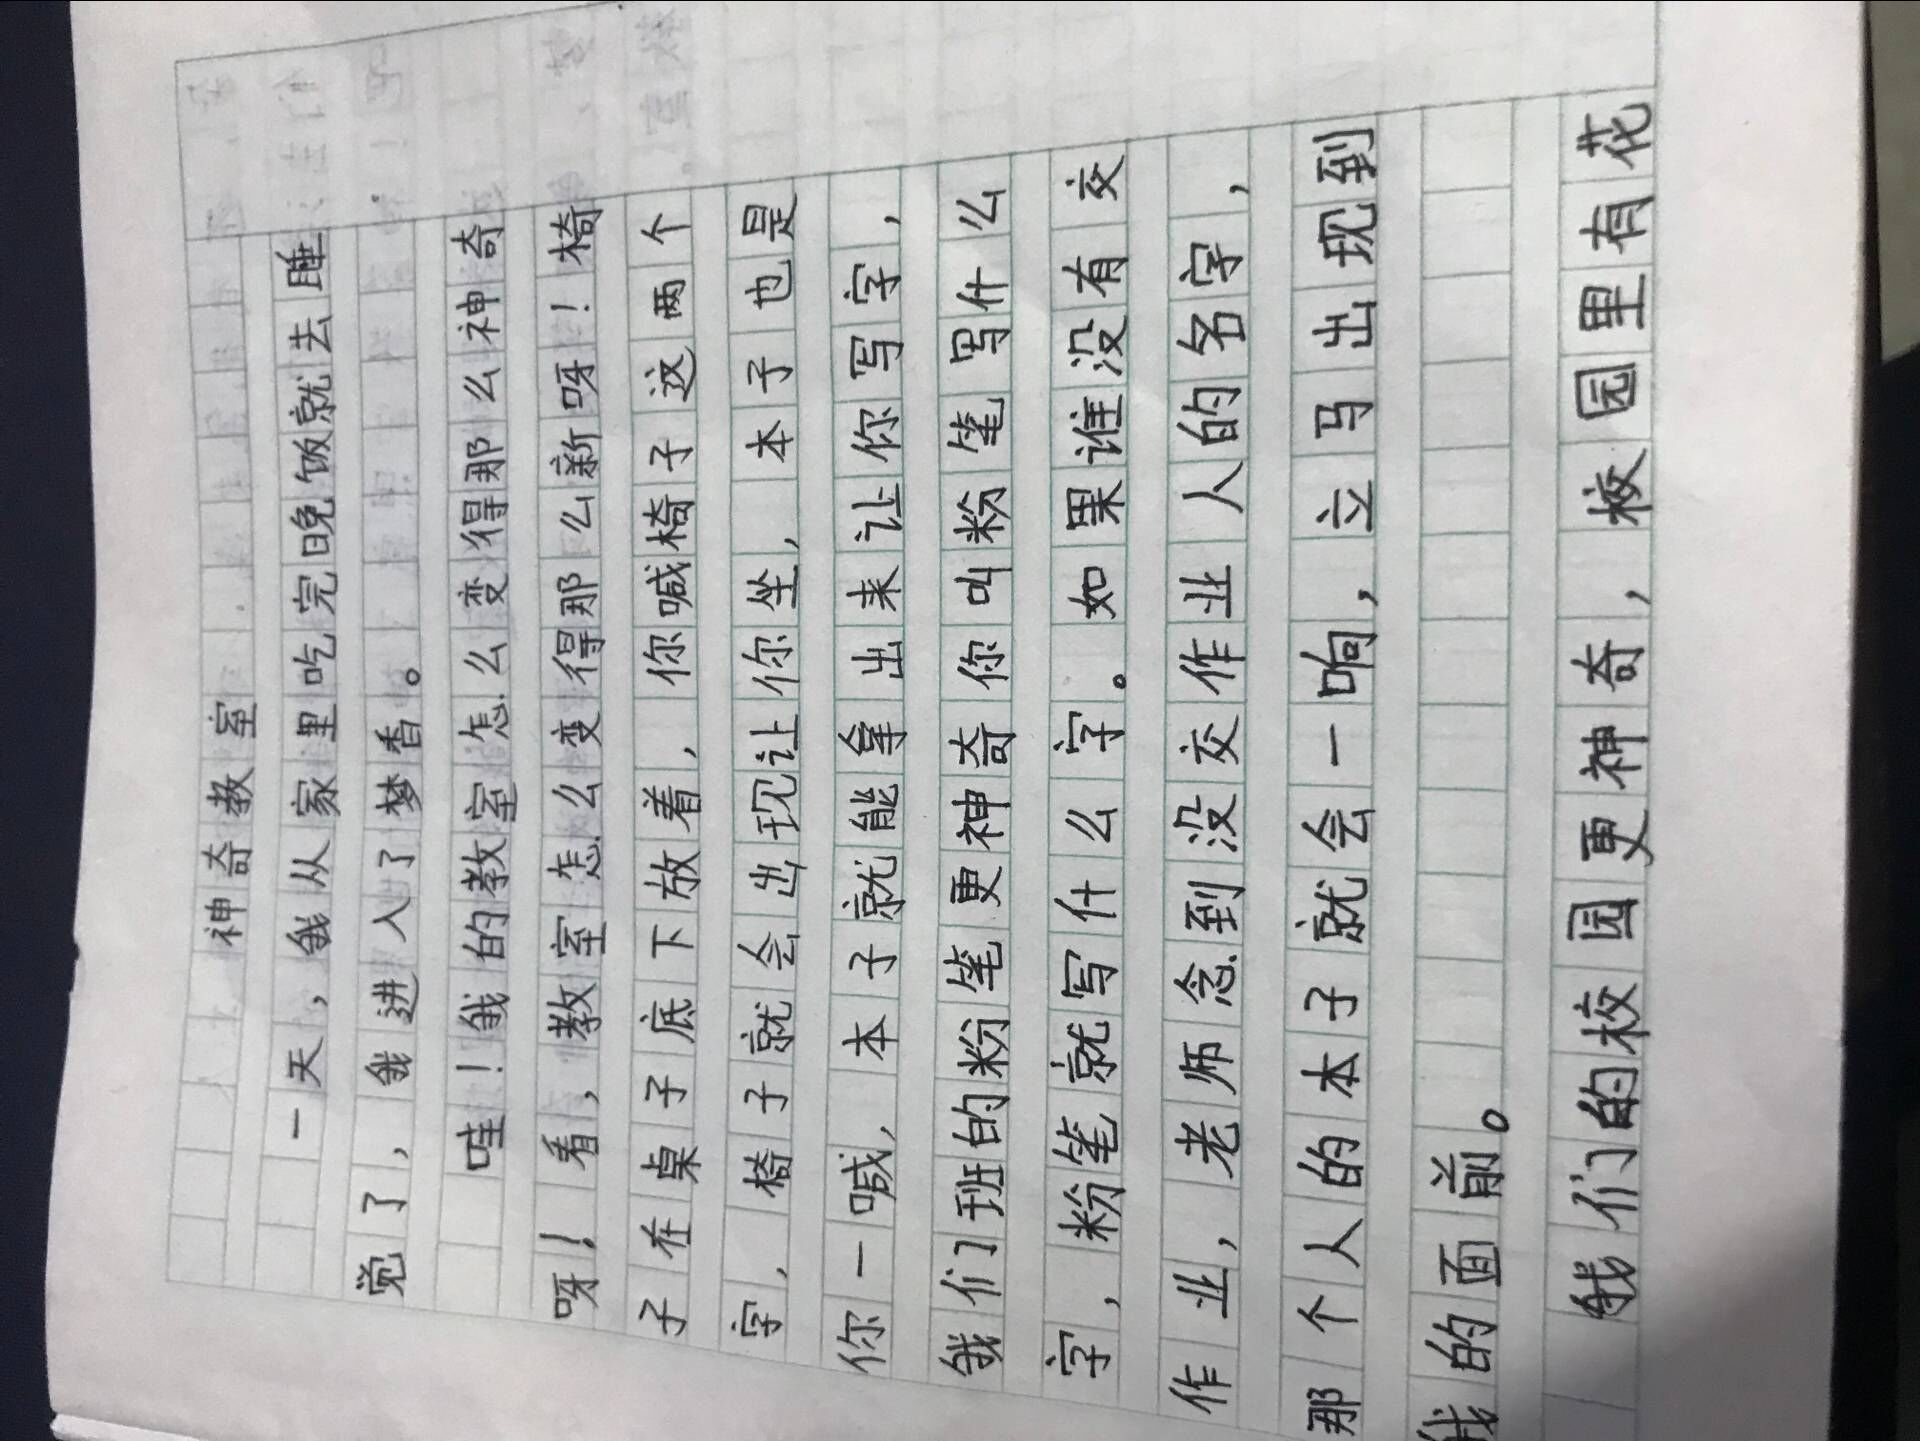 神奇教室
一天，我从家里吃完晚饭就去睡
觉了，我进入了梦香。
哇！我的教室怎么变得那么神奇
呀！看，教室怎么变得那么新呀！椅
子在桌子底下放着，你喊椅子这两个
字，椅子就会出现让你坐，本子也是
你一喊，本子就能拿出来让你写字，
我们班的粉笔更神奇你叫粉笔写什么
字，粉笔就写什么字。如果谁没有交
作业，老师念到没交作业人的名字，
那个人的本子就会一响，立马出现到
我的面前。
我们的校园更神奇，校园里有花